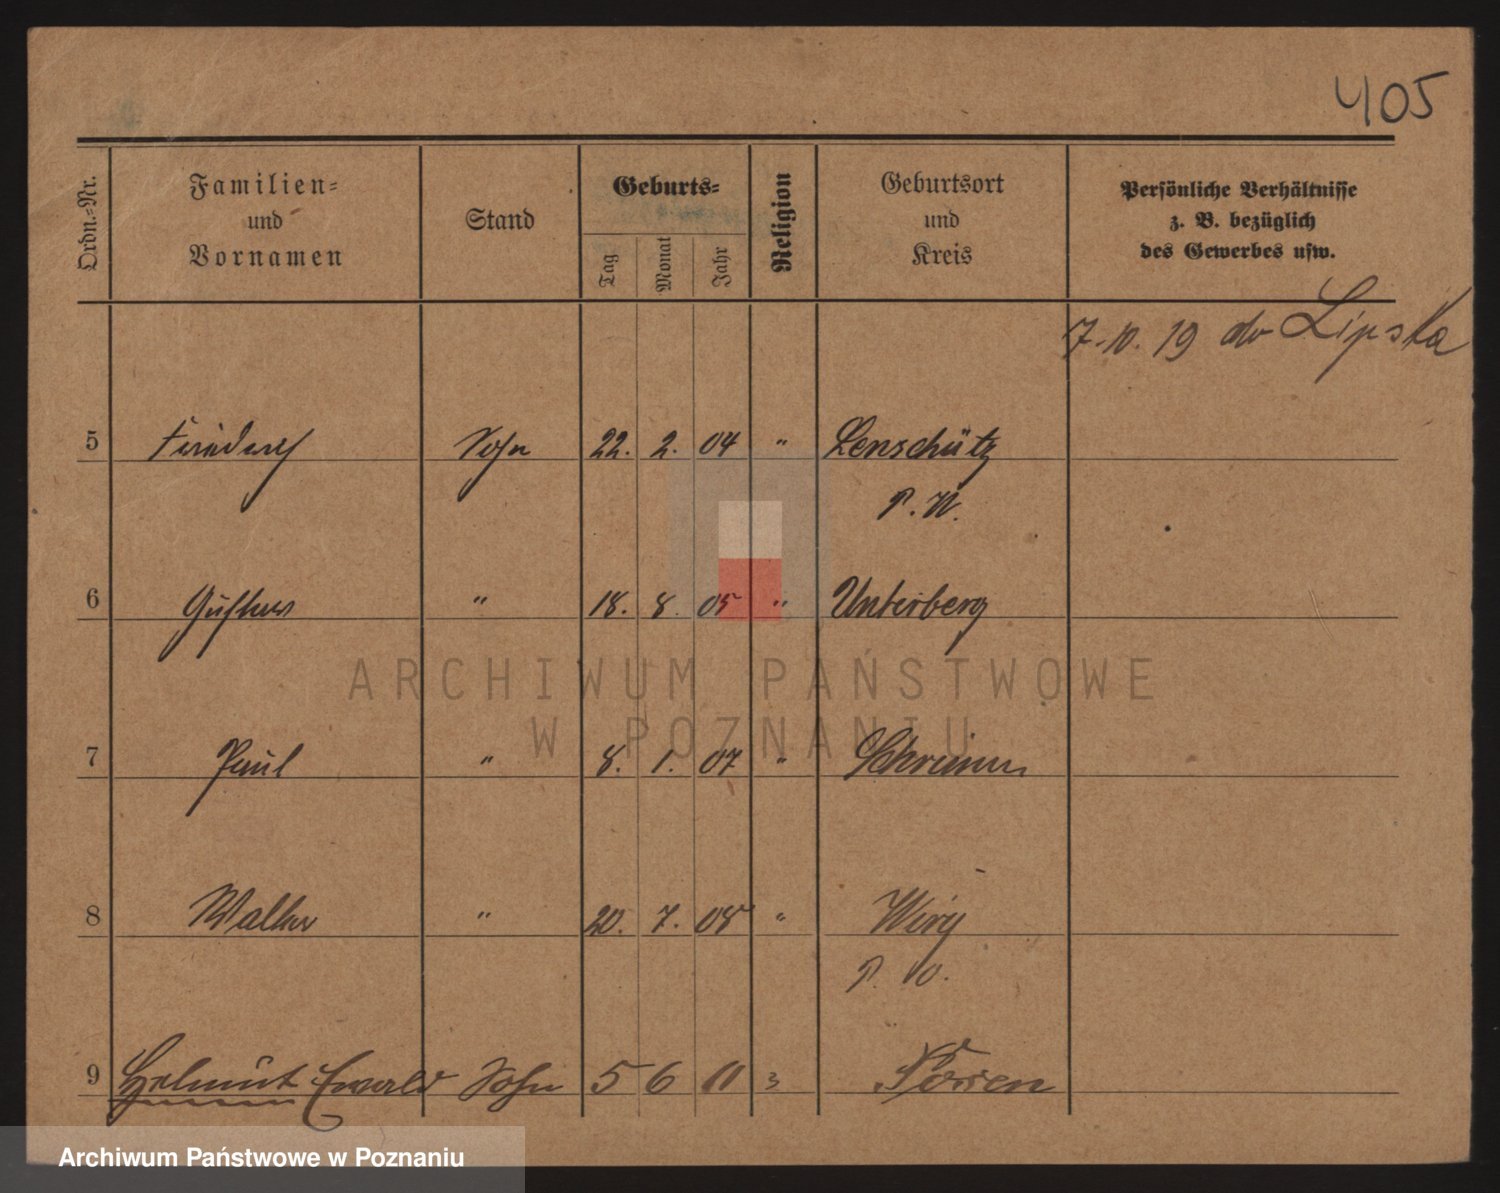 405
Ordn.=Nr.
Familien=
und
Vornamen
Stand
Geburts=
Tag
Monat
Jahr
Religion
Geburtsort
und
Kreis
Persönliche Verhältnisse
z. B. bezüglich
des Gewerbes usw.
7.10.19 do Lipska
5 Friedrich Sohn 22. 2. 04 " Lenschütz
P. W.
6 Gustav " 18. 8. 05 " Unterberg
ARCHIWUM PAŃSTWOWE
W POZNANIU
7 Paul " 8. 1. 07 " Schrimm
8 Walter " 20. 7. 08 " Wiry
P. O.
9 Helmut Ewald Sohn 5 6 11 Posen
Archiwum Państwowe w Poznaniu